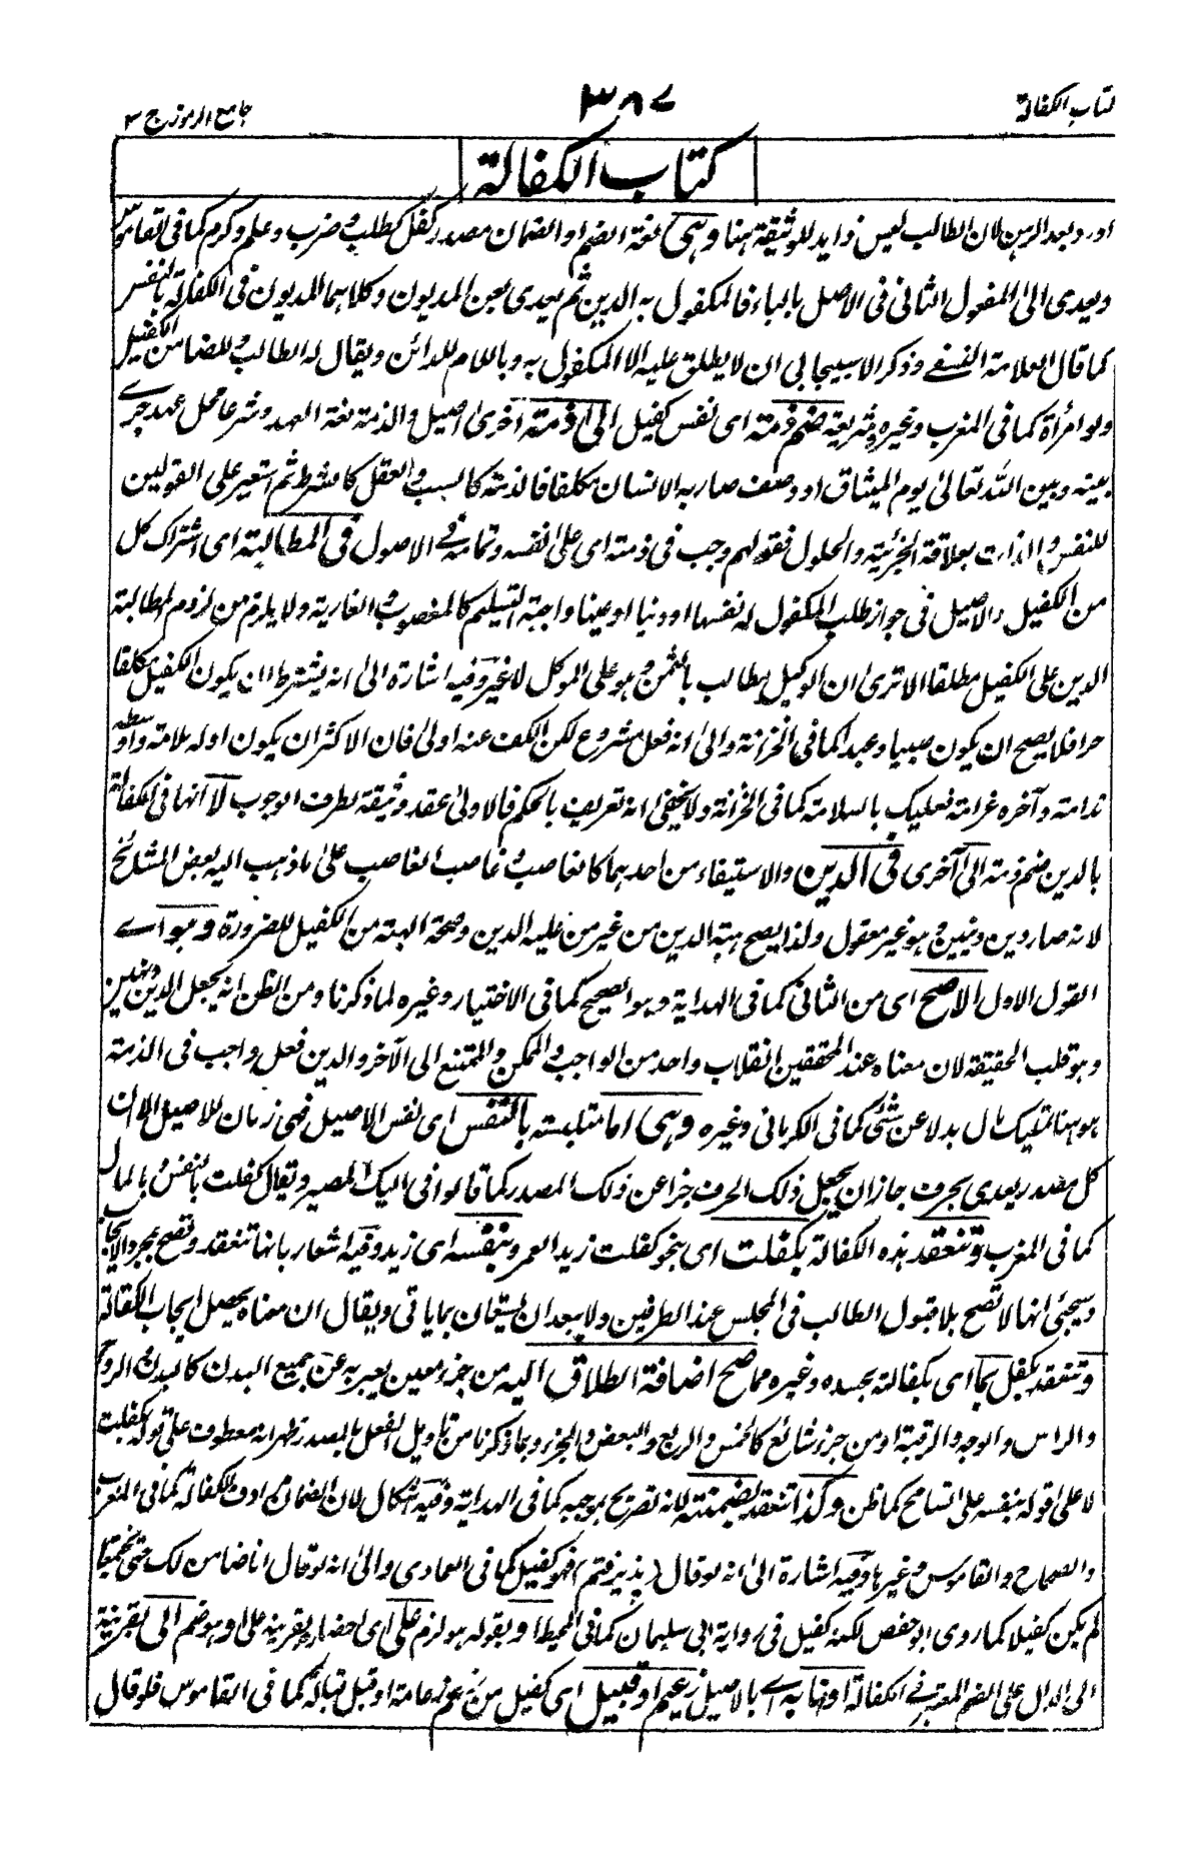 كتاب الكفالة
٣٨٧
جامع الرموز ج ٣
كتاب الكفالة
اورد بعد الرهن لان الطالب ليس زايد للوثيقة هنا وهى لغة الضم او الضمان مصدر كفل كطلب وضرب وعلم وكرم كما فى القاموس
ويعدى الى المفعول الثانى فى الاصل بالباء فالمكفول به الدين ثم يعدى بعن المديون وكلاهما للمديون فى الكفالة بالنفس
كما قال العلامة النسفے وذكر الاسبيجابى ان لا يطلق عليه الا المكفول به وباللام للدائن ويقال له الطالب وللضامن الكفيل
ولو امرأة كما فى المغرب وغيره وشريعة ضم ذمة اى نفس كفيل الى ذمة اخرى اصيل والذمة لغة العهد وشرعا محل عهد جرے
بينه وبين الله تعالى يوم الميثاق او وصف صار به الانسان مكلفا فالذمة كالسبب والعقل كالشرط ثم استعير على القولين
للنفس والذات بعلاقة الجزئية والحلول فقولهم وجب فى ذمته اى على نفسه وتمامه فے الاصول فى المطالبة اى اشتراك كل
من الكفيل والاصيل فى جواز طلب المكفول له نفسها او دينا او عينا واجبة التسليم كالمغصوب والعارية ولا يلزم من لزوم المطالبة
الدين على الكفيل مطلقا الا ترى ان الوكيل يطالب بالثمن وهو على الموكل لا غير وفيه اشارة الى انه يشترط ان يكون الكفيل مكلفا
حرا فلا يصح ان يكون صبيا وعبدا كما فى الخزانة والى انه فعل مشروع لكن الكف عنه اولى فان الاكثر ان يكون اوله ملامة واوسطه
ندامة وآخره غرامة فعليك بالسلامة كما فى الخزانة ولا يخفى انه تعريف بالحكم فالاولى عقد وثيقة لطرف الوجوب لا انها فى الكفالة
بالدين ضم ذمة الى آخرى فى الدين والاستيفاء من احدهما كالغاصب وغاصب الغاصب على ما ذهب اليه بعض المشائخ
لانه صار دين دينين وهو غير معقول ولذا يصح هبة الدين من غير من عليه الدين وصحة الهبة من الكفيل للضرورة وهو اے
القول الاول الاصح اى من الثانى كما فى الهداية وهو الصحيح كما فى الاختيار وغيره لما ذكرنا ومن الظن انه يجعل الدين دينين
وهو قلب الحقيقة لان معناه عند المحققين انقلاب واحد من الواجب والممكن والممتنع الى الآخر والدين فعل واجب فى الذمة
هو هنا تمليك مال بدلا عن شئ كما فى الكرمانى وغيره وهى اما متلبسة بالنفس اى نفس الاصيل فهى زمان للاصيل الا ان
كل مصدر يعدى بحرف جاز ان يجعل ذلك الحرف خبرا عن ذلك المصدر كما قالوا فى اليك المصير ويقال كفلت بالنفس وبالمال
كما فى المغرب وتنعقد هذه الكفالة بكفلت اى بنحو كفلت زيدا لعمرو بنفسه اى زيد وفيه اشعار بانها تنعقد وتصح بمجرد الايجاب
وسيجئ انها لا تصح بلا قبول الطالب فى المجلس عند الطرفين ولا يبعد ان يستعان بما ياتى ويقال ان معناه يحصل ايجاب الكفالة
وتنعقد بكفل بما اى بكفالته بجسده وغيره مما صح اضافة الطلاق اليه من جزء معين يعبر به عن جميع البدن كالبدن والروح
والراس والوجه والرقبة او من جزء شائع كالخمس والربع والبعض والجزء وبما ذكرنا من تاويل الفعل بالمصدر ظهر انه معطوف على قوله بكفلت
لا على قوله بنفسه على التسامح كما ظن وكذا تنعقد بضمنته لانه تصريح بموجبه كما فى الهداية وفيه اشكال لان الضمان مرادف للكفالة كما فى المغرب
والصحاح والقاموس وغيرها وفيه اشارة الى انه لو قال (پذيرفتم) فهو كفيل كما فى العمادى والى انه لو قال انا ضامن لك حتى نجمعتها
لم يكن كفيلا كما روى ابو حفص لكنه كفيل فى رواية ابى سليمان كما فى المحيط او بقوله هو لزم على اى احضاره بقرينة على او هو ضم الى بقرينة
الى الدال على الضم المعتبر فے الكفالة او انا به اے بالاصيل زعيم او قبيل اى كفيل من زعم زعامة او قبل قبالة كما فى القاموس فلو قال